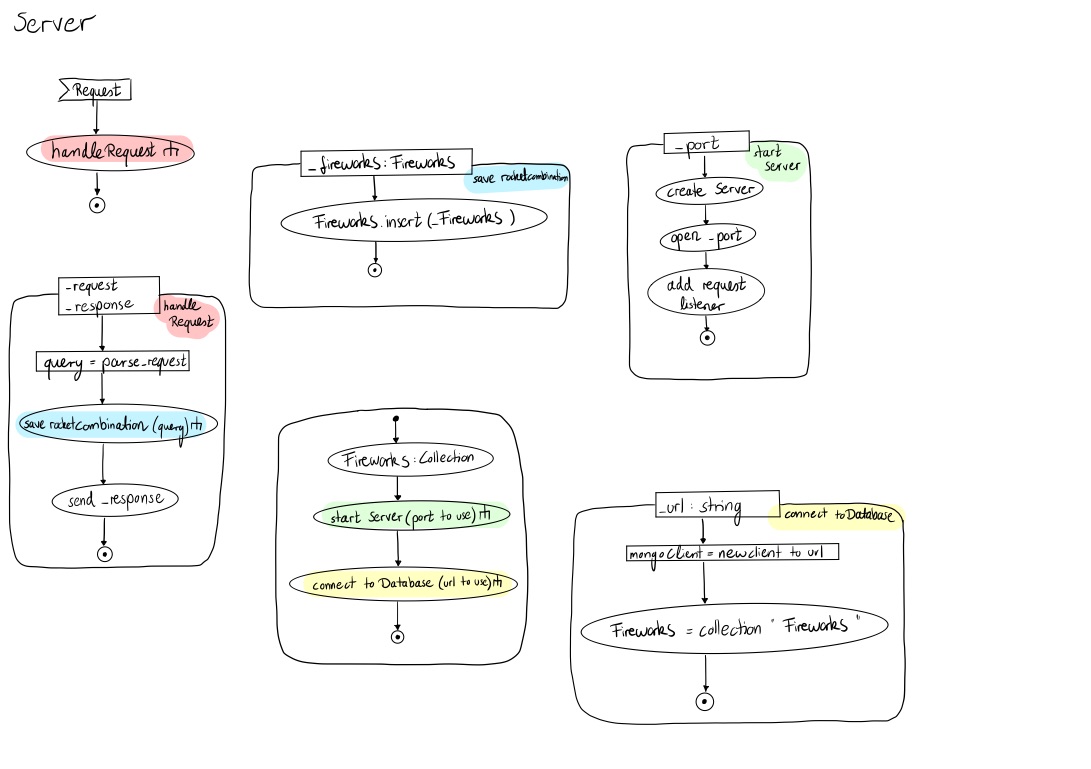 Server
Request
handleRequest
_request
_response
handle
Request
query = parse_request
save rocketcombination (query)
send _response
_fireworks: Fireworks
save rocketcombination
Fireworks.insert (_Fireworks )
Fireworks : Collection
start Server (port to use)
connect to Database (url to use)
_port
start
server
create Server
open _port
add request
listener
_url : string
connect to Database
mongoClient = new client to url
Fireworks = collection " Fireworks "